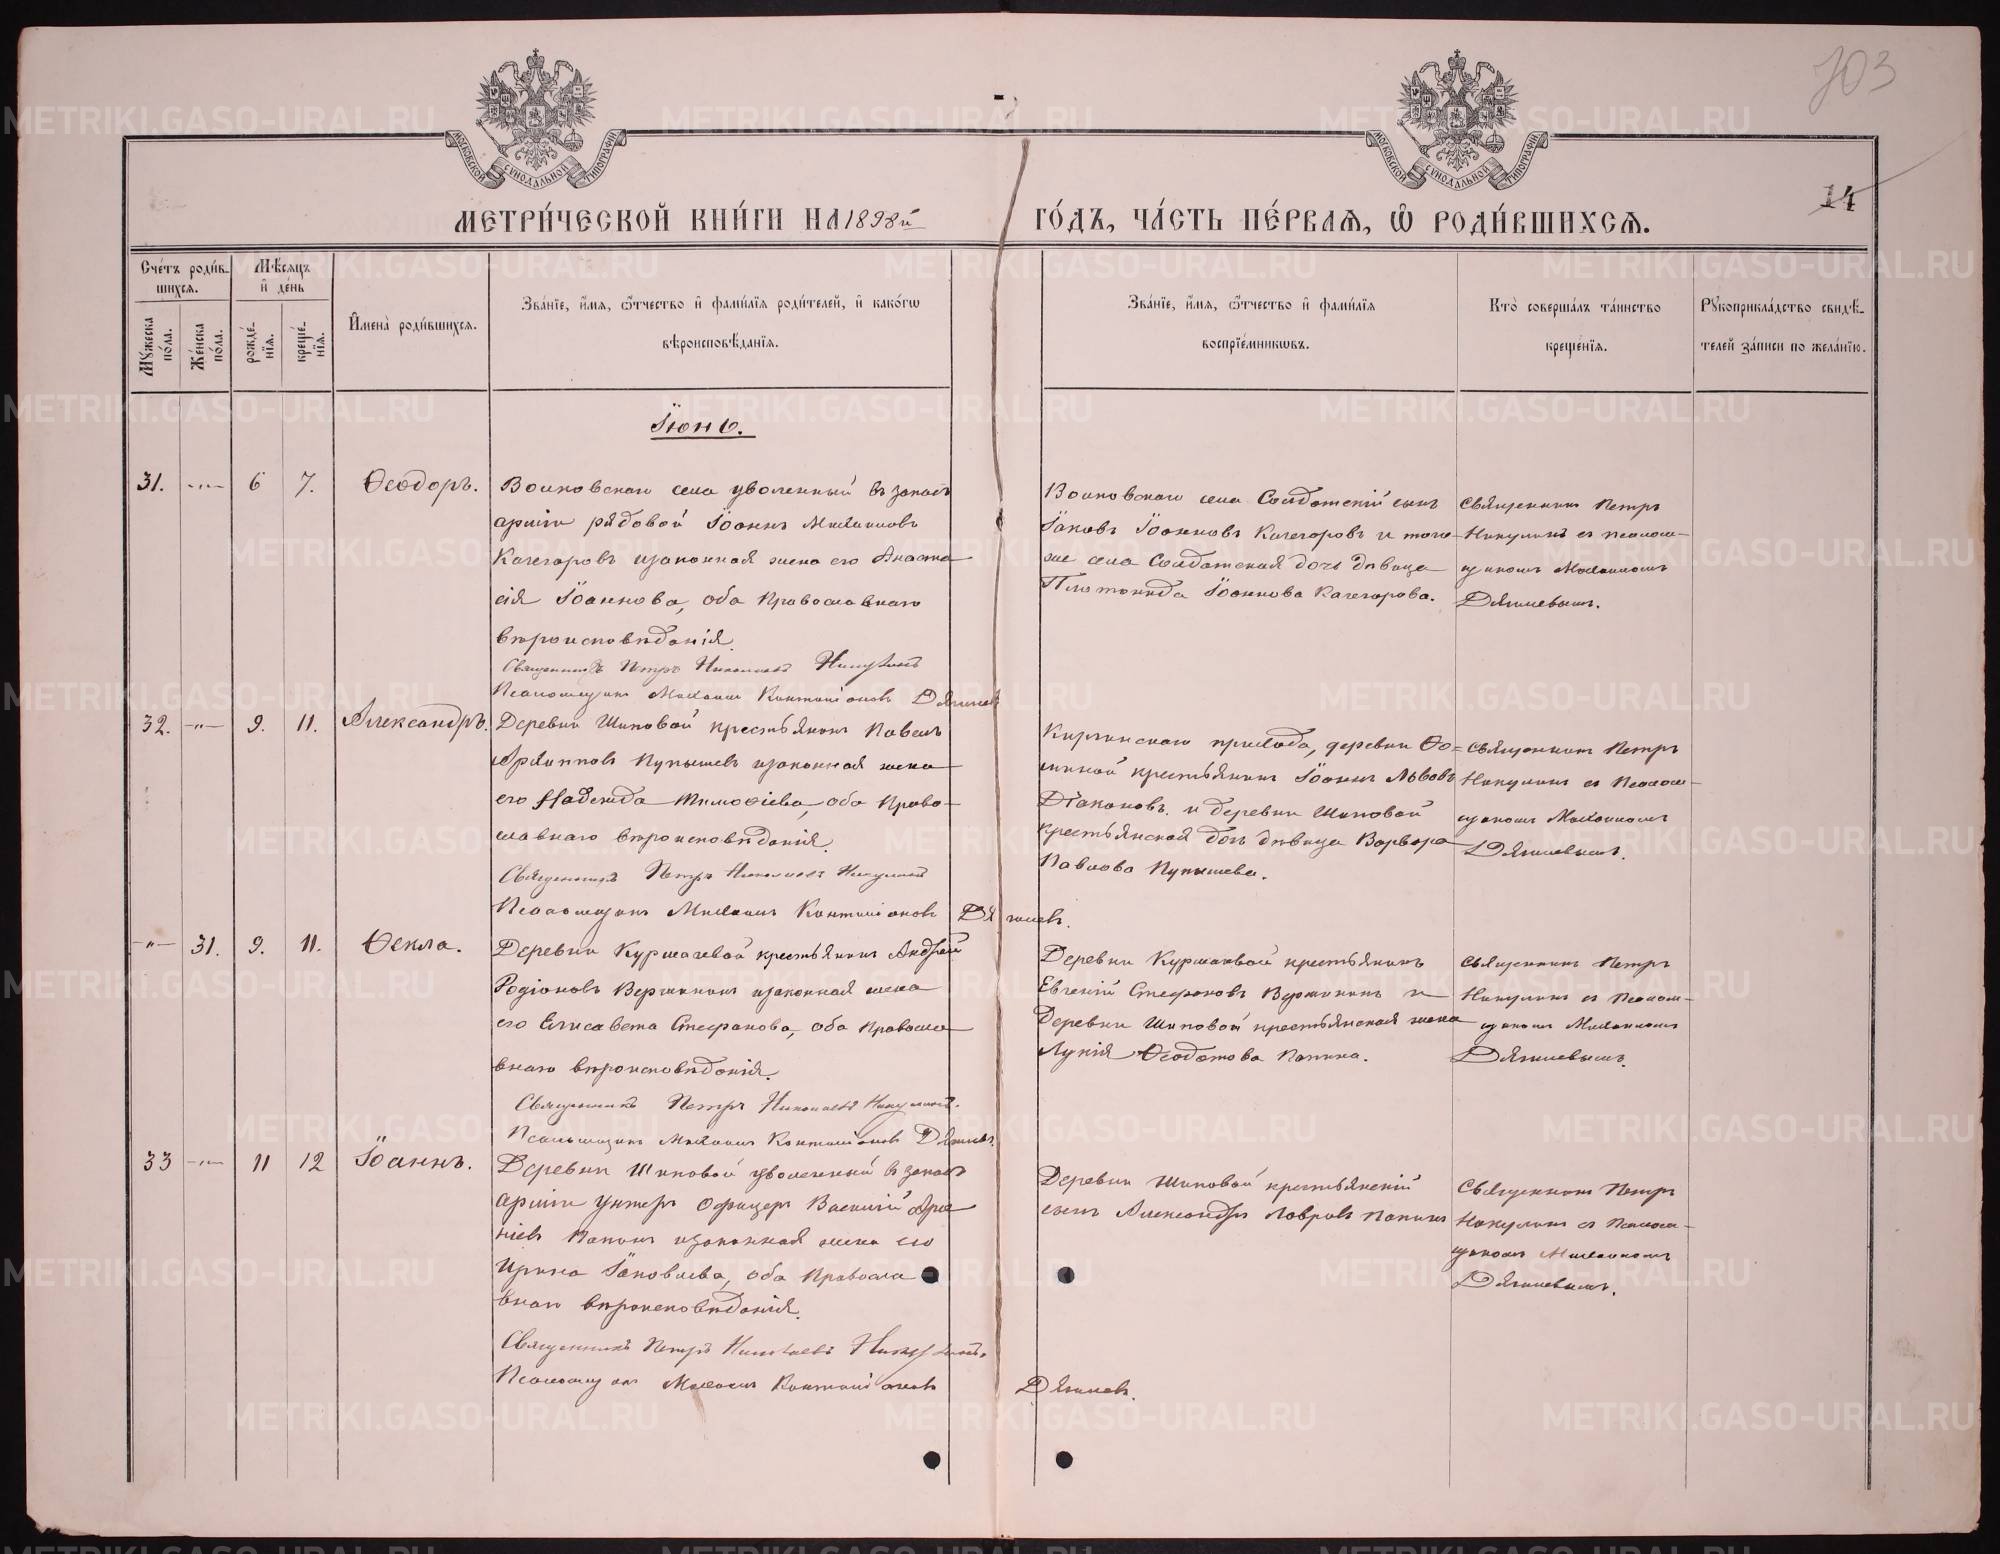 703
14
МОСКОВСКОЙ СѴНОДАЛЬНОЙ ТИПОГРАФИИ
МОСКОВСКОЙ СѴНОДАЛЬНОЙ ТИПОГРАФИИ
МЕТРИ́ЧЕСКОЙ КНИ́ГИ НА 1898й ГО́ДЪ, ЧА́СТЬ ПЕ́РВАѦ, Ѽ РОДИ́ВШИХСѦ.
Сче́тъ роди́в-
шихсѧ.
Мѣ́сѧцъ
и҆ де́нь
Мꙋ́жеска
по́ла.
Же́нска
по́ла.
рожде́-
нїѧ.
креще́-
нїѧ.
И҆мена̀ роди́вшихсѧ.
Зва́нїе, и҆́мѧ, ѻ҆́тчество и҆ фами́лїѧ роди́телей, и҆ како́гѡ
вѣроисповѣ́данїѧ.
Зва́нїе, и҆́мѧ, ѻ҆́тчество и҆ фами́лїѧ
воспрїе́мникѡвъ.
Кто̀ соверша́лъ та́инство
креще́нїѧ.
Рꙋкоприкла́дство свидѣ́-
телей за́писи по жела́нїю.
Іюнь.
31. -„- 6 7. Ѳеодоръ.
Волковскаго села уволенный въ запасъ
арміи рядовой Іоаннъ Михаиловъ
Качегаровъ изаконная жена его Анаста
сія Іоаннова, оба Православнаго
вѣроисповѣданія.
Священникъ Петръ Николаевъ Никулинъ
Псаломщикъ Михаилъ Дягилев
Волковскаго села Солдатскій сынъ
Іаковъ Іоанновъ Качегаровъ и того
же села Солдатская дочь дѣвица
Платонида Іоаннова Качегарова.
Священникъ Петръ
Никулинъ съ псалом-
щикомъ Михаиломъ
Дягилевымъ.
32. -„- 9. 11. Александръ.
Деревни Шиповой крестьянинъ Павелъ
Архиповъ Пупышевъ изаконная жена
его Надежда Тимоѳіева, оба Право-
славнаго вѣроисповѣданія.
Священникъ Петръ Николаевъ Никулинъ
Псаломщикъ Михаилъ Дягилевъ.
прихода, деревни Ѳо=
миной крестьянинъ Іоаннъ Львовъ
Діаконовъ. и деревни Шиповой
крестьянская дочь дѣвица Варвара
Павлова Пупышева.
Священникъ Петръ
Никулинъ съ Псалом-
щикомъ Михаиломъ
Дягилевымъ.
-„- 31. 9. 11. Ѳекла.
Деревни Курмачевой крестьянинъ Андрей
Родіоновъ Вершининъ изаконная жена
его Елисавета Стефанова, оба Правосла
внаго вѣроисповѣданія.
Священникъ Петръ Николаевъ Никулинъ.
Псаломщикъ Михаилъ Дягилевъ.
Деревни крестьянинъ
Евгеній Стефановъ Вершининъ и
Деревни Шиповой крестьянская жена
Лукія Ѳеодотова Папина.
Священникъ Петръ
Никулинъ съ Псалом-
щикомъ Михаиломъ
Дягилевымъ.
33 -„- 11 12 Іоаннъ.
Деревни Шиповой уволенный въ запасъ
арміи унтеръ офицеръ Василий
Папинъ изаконная жена его
Ирина Іаковлева, оба Правосла
внаго вѣроисповѣданія.
Священникъ Петръ Николаевъ Никулинъ.
Псаломщикъ Михаилъ Дягилевъ.
Деревни Шиповой крестьянскій
сынъ Александръ Лавровъ Папинъ
Священникъ Петръ
Никулинъ съ Псалом-
щикомъ Михаиломъ
Дягилевымъ.
METRIKI.GASO-URAL.RU